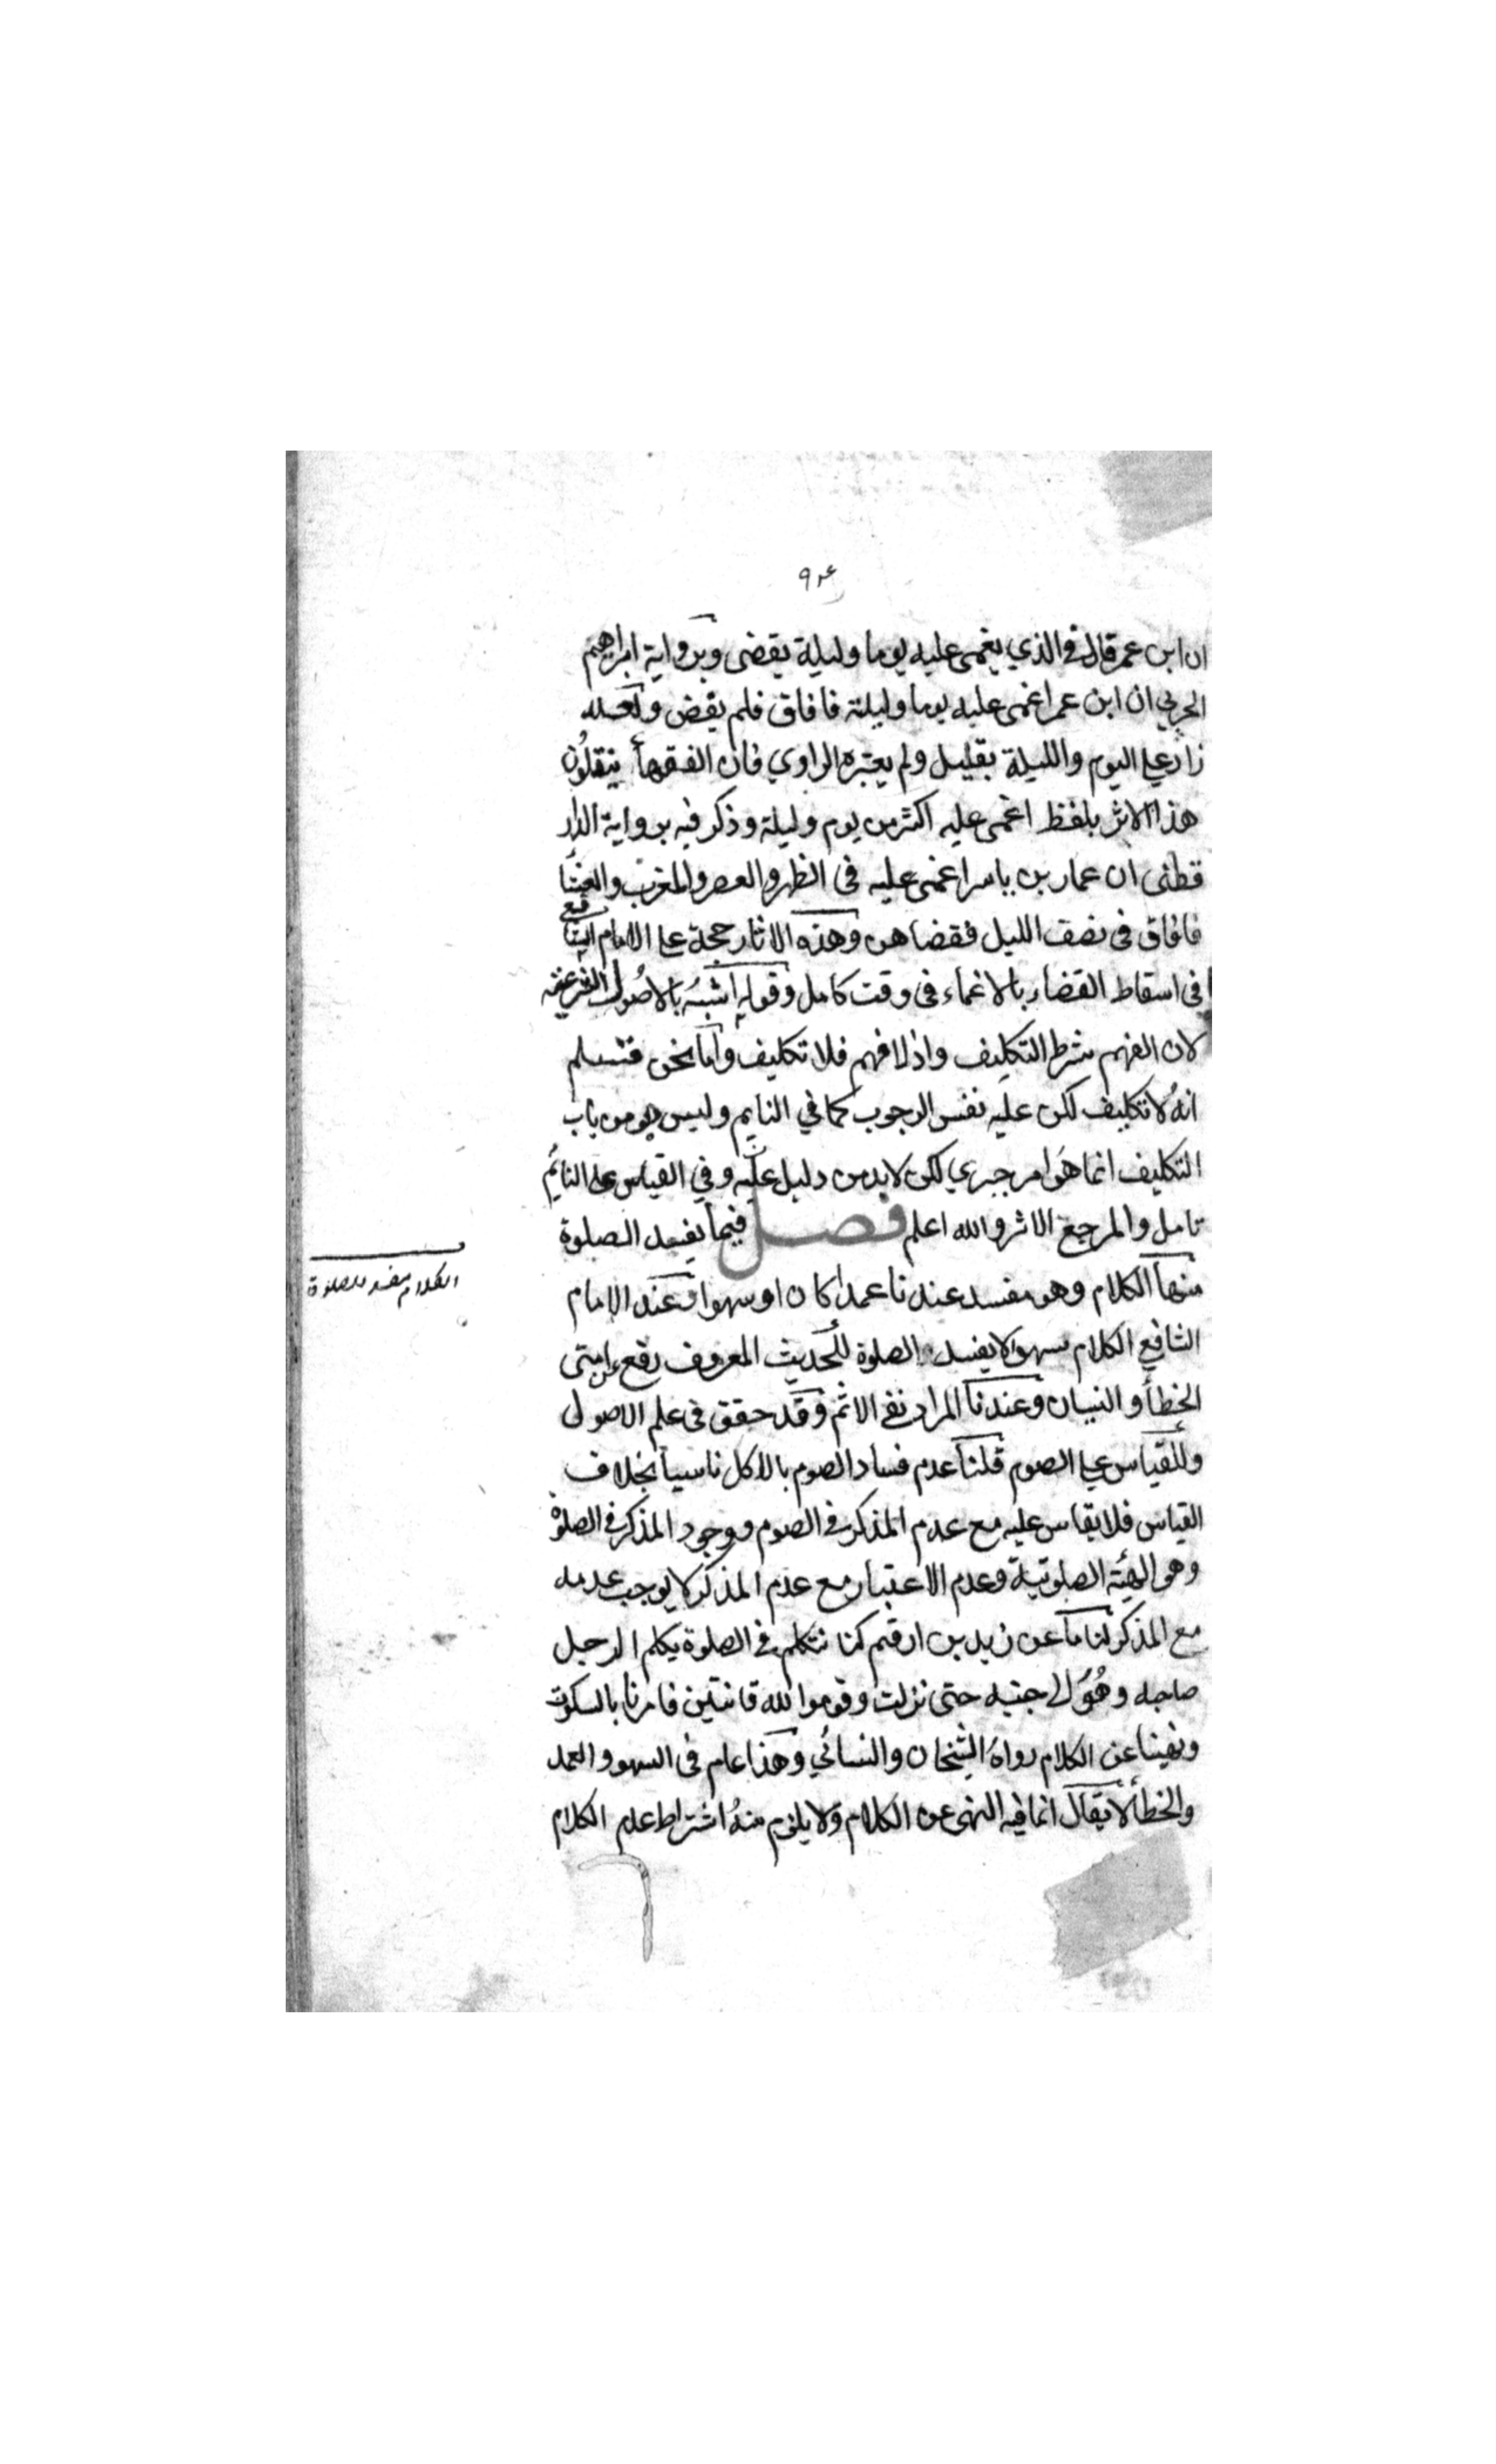 ان ابن عمر قال في الذي يغمى عليه يوما وليلة يقضى وبرواية ابراهيم
الحربي ان ابن عمر اغمى عليه يوما وليلة فافاق فلم يقض ولعله
زاد على اليوم والليلة بقليل ولم يعتبره الراوي فان الفقهأ ينقلون
هذا الاثر بلفظ اغمى عليه اكثر من يوم وليلة وذكر فيه برواية الدار
قطنى ان عمار بن ياسر اغمى عليه فى الظهر والعصر والمغرب والعشأ
فافاق فى نصف الليل فقضاهن وهذه الاثار حجة على الامام الشافعي
فى اسقاط القضاء بالاغماء فى وقت كامل وقوله اشبه بالاصول الشرعية
لان الفهم شرط التكليف واذ لا فهم فلا تكليف وأما نحن فنسلم
انه لا تكليف لكن عليه نفس الوجوب كما في النايم وليس هو من باب
التكليف انما هو امر جبري لكن لا بد من دليل عليه وفي القياس على النايم
تامل والمرجع الاثر والله اعلم فصل فيما يفسد الصلوة
منها الكلام وهو مفسد عندنا عمدا كان او سهوا وعند الامام
الكلام مفسد للصلوة
الشافعي الكلام سهوا لا يفسد الصلوة للحديث المعروف رفع عن امتى
الخطأ والنسيان وعندنا المراد نفي الاثم وقد حقق فى علم الاصول
وللقياس على الصوم قلنا عدم فساد الصوم بالاكل ناسيا بخلاف
القياس فلا يقاس عليه مع عدم المذكر في الصوم ووجود المذكر في الصلوة
وهو الهيئة الصلوتية وعدم الاعتبار مع عدم المذكر لا يوجب عدمه
مع المذكر لنا ما عن زيد بن ارقم كنا نتكلم في الصلوة يكلم الرجل
صاحبه وهو الى جنبه حتى نزلت وقوموا لله قانتين فامرنا بالسكوت
ونهينا عن الكلام رواه الشيخان والنسائي وهذا عام فى السهو والعمد
والخطأ لا يقال انما فيه النهى عن الكلام ولا يلزم منه اشتراط عدم الكلام